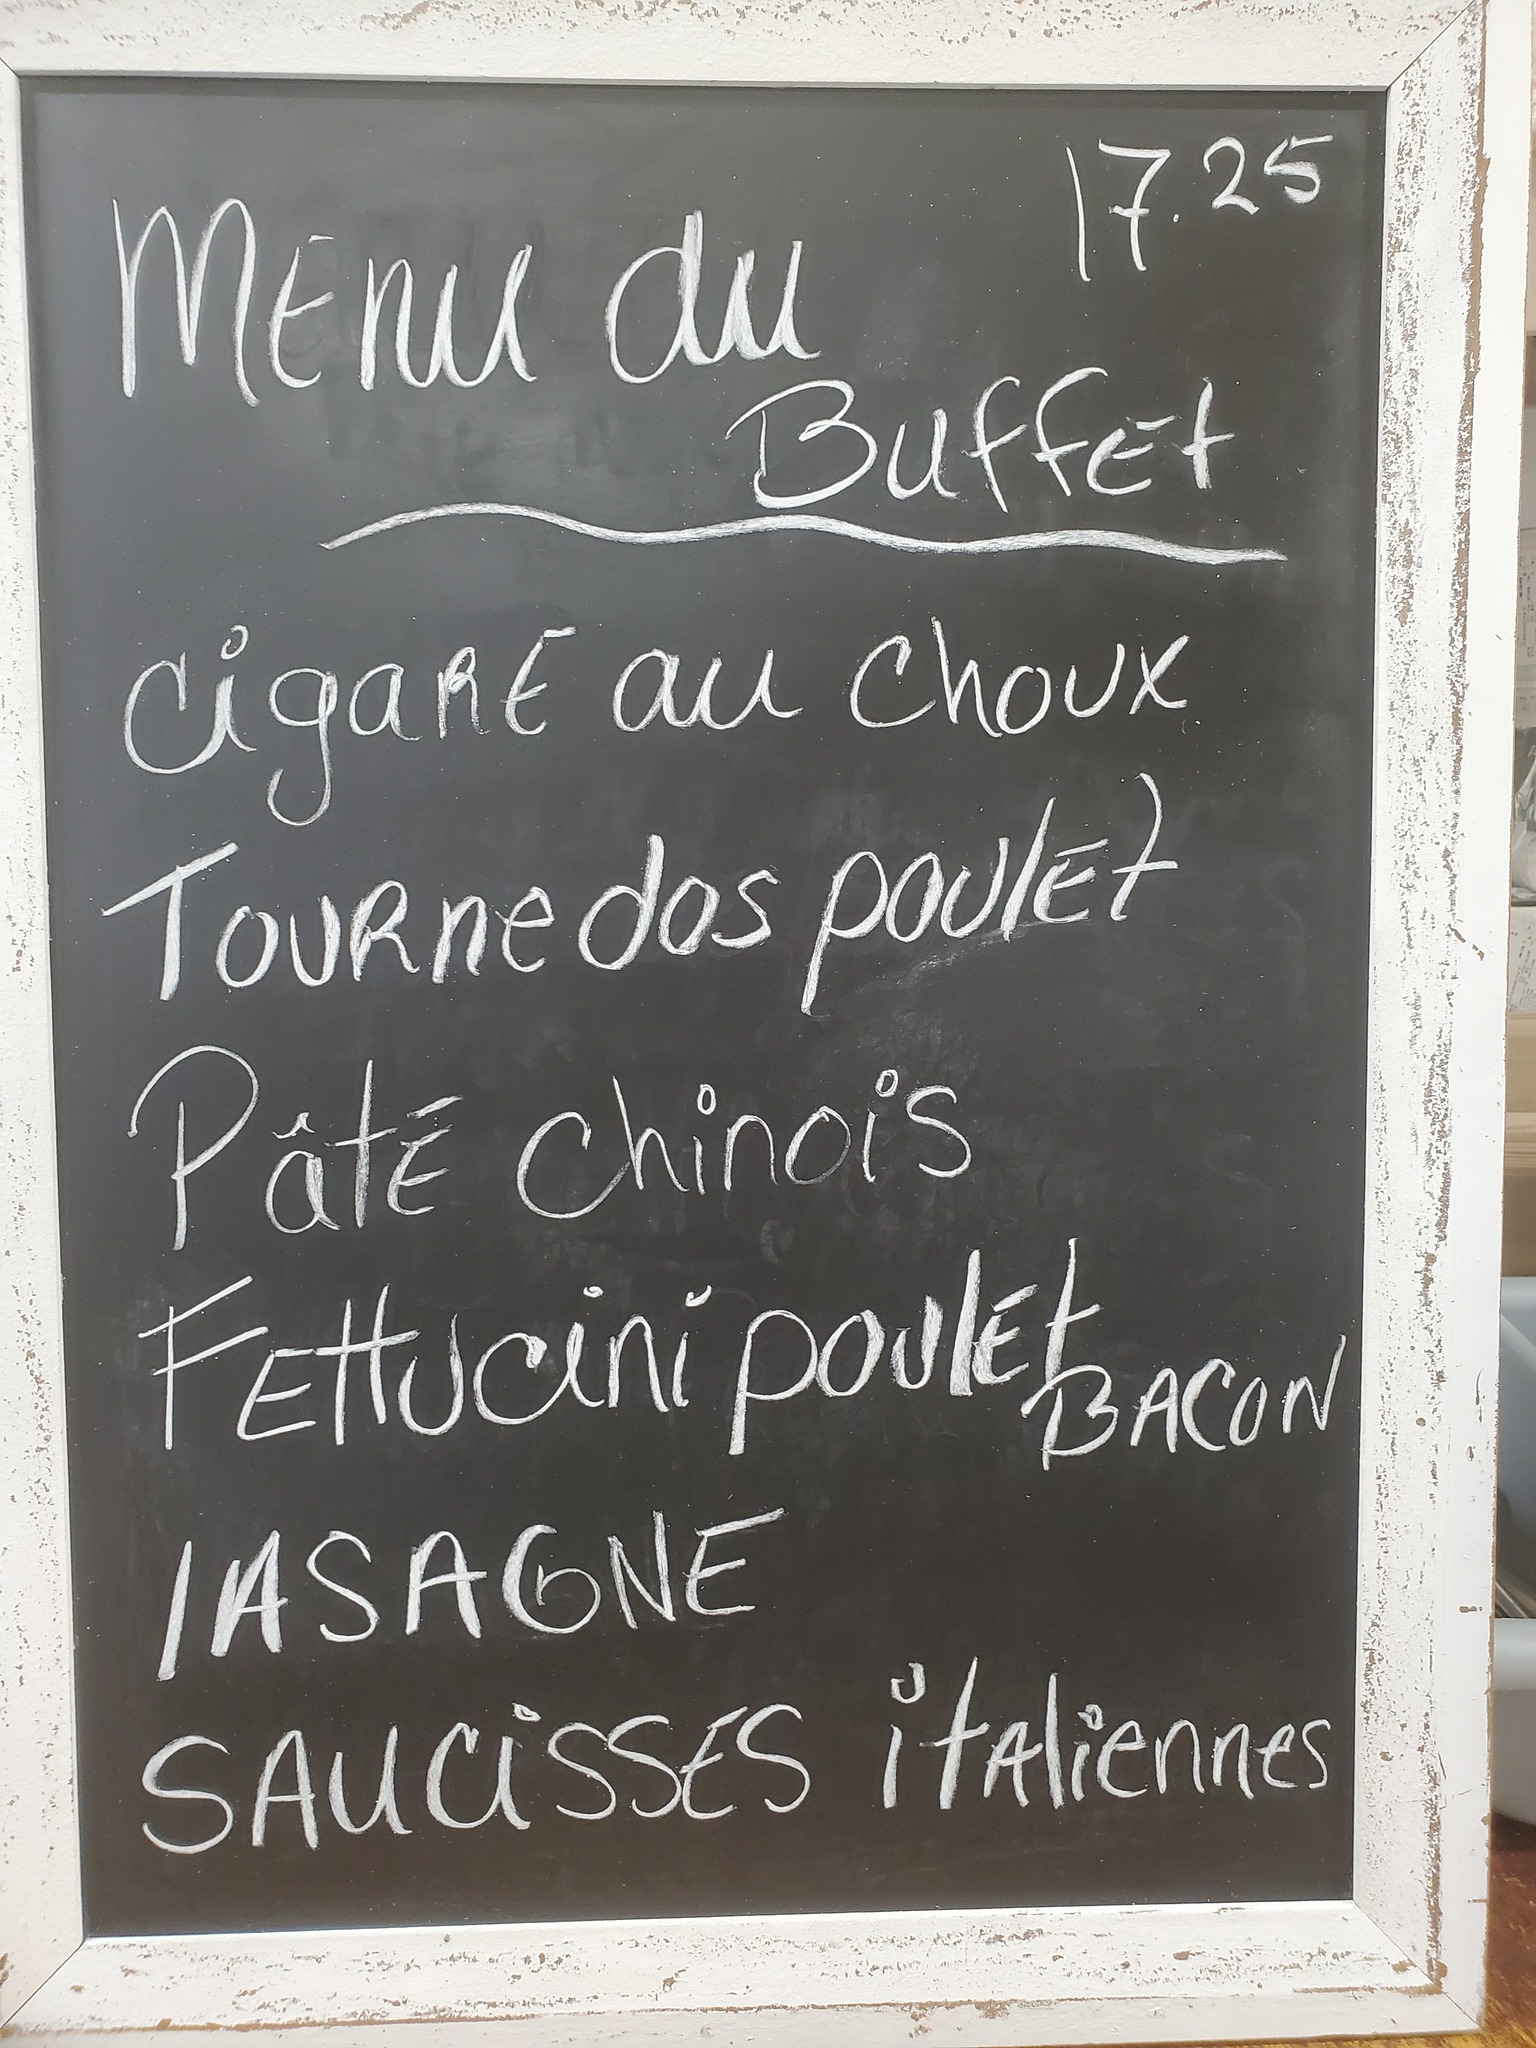 17.25
Menu du
Buffet
Cigare au choux
Tournedos poulet
Pâté chinois
Fettucini poulet
BACON
lASAGNE
SAUCiSSES itAliennes